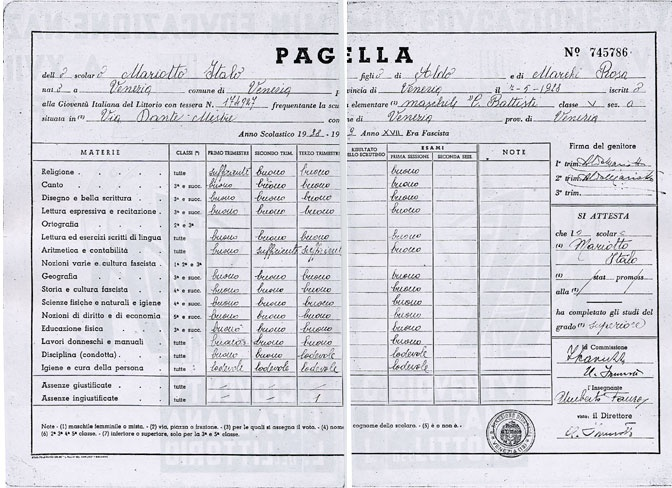 PAGELLA
Nº 745786
dell o scolar o Mariotto Italo figli o di Aldo e di Marchi Rosa
nat o a Venezia comune di Venezia provincia di Venezia il 7-5-1928 iscritt o
alla Gioventù Italiana del Littorio con tessera N. 174947 frequentante la scu elementare (1) maschile "C. Battisti" classe V sez. a
situata in (2) Via Dante - Mestre comune di Venezia prov. di Venezia
Anno Scolastico 1938 - 19 9 Anno XVII, Era Fascista
MATERIE CLASSI (*) PRIMO TRIMESTRE SECONDO TRIM. TERZO TRIMESTRE RISULTATO DELLO SCRUTINIO ESAMI PRIMA SESSIONE SECONDA SESS. NOTE
Religione tutte sufficiente buono buono buono
Canto 3ª e succ. buono buono buono buono
Disegno e bella scrittura tutte buono buono buono buono
Lettura espressiva e recitazione 3ª e succ. buono buono buono buono
Ortografia 2ª e 3ª
Lettura ed esercizi scritti di lingua tutte buono buono buono buono
Aritmetica e contabilità tutte buono sufficiente sufficiente buono
Nozioni varie e cultura fascista 1ª 2ª e 3ª
Geografia 3ª e succ. buono buono buono buono
Storia e cultura fascista 4ª e succ. buono buono buono buono
Scienze fisiche e naturali e igiene 4ª e succ. buono buono buono buono
Nozioni di diritto e di economia 5ª e succ. buono buono buono buono
Educazione fisica 3ª e succ. buono buono buono buono
Lavori donneschi e manuali tutte buono buono buono buono
Disciplina (condotta) tutte buono buono lodevole lodevole
Igiene e cura della persona tutte lodevole lodevole lodevole lodevole
Assenze giustificate tutte
Assenze ingiustificate tutte 1
Firma del genitore
1º trim.
2º trim.
3º trim.
SI ATTESTA
che l o scolar o
(4) Mariotto
Italo
(5) stat promoss
alla (6)
ha completato gli studi del
grado (7) superiore
la Commissione
l'Insegnante
Umberto
visto: il Direttore
Note - (1) maschile femminile o mista. - (2) via, piazza o frazione. - (3) per le quali si assegna il voto. - (4) nome cognome dello scolaro. - (5) è o non è.
(6) 2ª 3ª 4ª 5ª classe. - (7) inferiore o superiore, solo per la 3ª e 5ª classe.